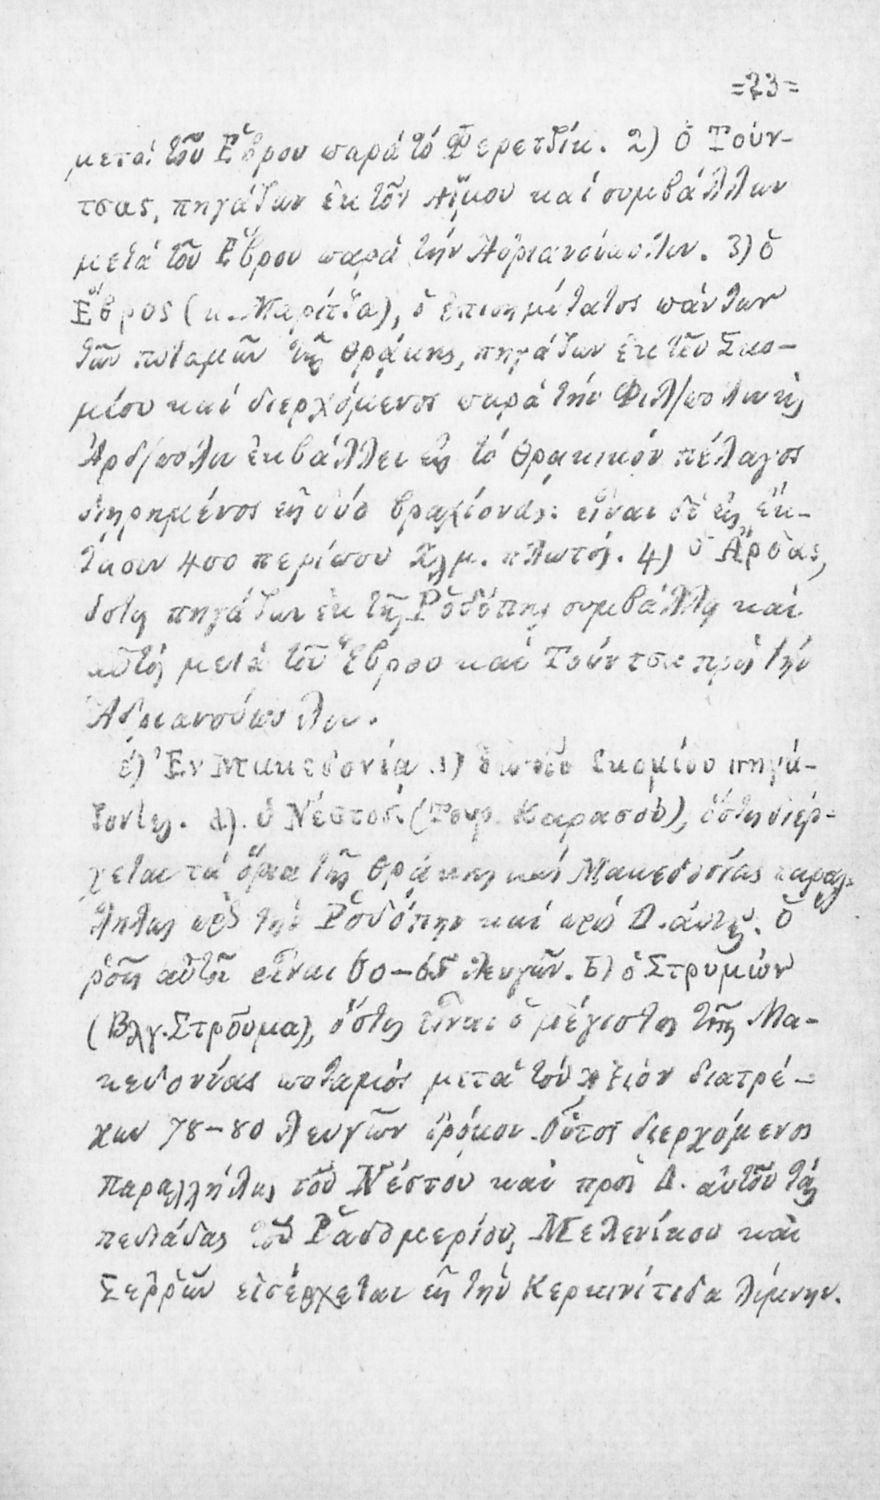 =23=
μετά τοῦ Ἕβρου παρά τό Φερετζίκ. 2) ὁ Τούν-
τσας, πηγάζων ἐκ τοῦ Αἵμου καί συμβάλλων
μετά τοῦ Ἕβρου παρά τήν Ἀδριανούπολιν. 3) ὁ
Ἕβρος (κ. Μαρίτζα), ὁ ἐπισημότατος πάντων
τῶν ποταμῶν τῆς Θράκης, πηγάζων ἐκ τοῦ Σκο-
μίου καί διερχόμενος παρά τήν Φιλ/πολιν κ
Ἀρδ/πολιν ἐκβάλλει εἰς τό Θρακικόν πέλαγος
διῃρημένος εἰς δύο βραχίονας· εἶναι δέ εἰς ἔκ-
τασιν 400 περίπου χλμ. πλωτός. 4) ὁ Ἄρδας,
ὅστις πηγάζων ἐκ τῆς Ῥοδόπης συμβάλλει καί
αὐτός μετά τοῦ Ἕβρου καί Τούντσα πρός τήν
Ἀδριανούπολιν.
έ) Ἐν Μακεδονίᾳ 1) Σκομίου πηγά-
ζοντες. α). ὁ Νέστος (Τουρ. Καρασού), ὅστις διέρ-
χεται τά ὅρια τῆς Θράκης καί Μακεδονίας παραλ-
λήλως πρὸς τήν Ῥοδόπην καί πρός Δ. αὐτῆς. Ὁ
ῥοῦς αὐτοῦ εἶναι 60-65 λευγῶν. Β) ὁ Στρυμών
(Βλγ. Στροῦμα), ὅστις εἶναι ὁ μέγιστος τῆς Μα-
κεδονίας ποταμός μετά τόν Ἀξιόν διατρέ-
χων 78-80 λευγῶν δρόμον. Οὗτος διερχόμενος
παραλλήλως τοῦ Νέστου καί πρός Δ. αὐτοῦ τάς
πεδιάδας τοῦ Ῥαδομερίου, Μελενίκου καί
Σερρῶν εἰσέρχεται εἰς τήν Κερκινίτιδα λίμνην.